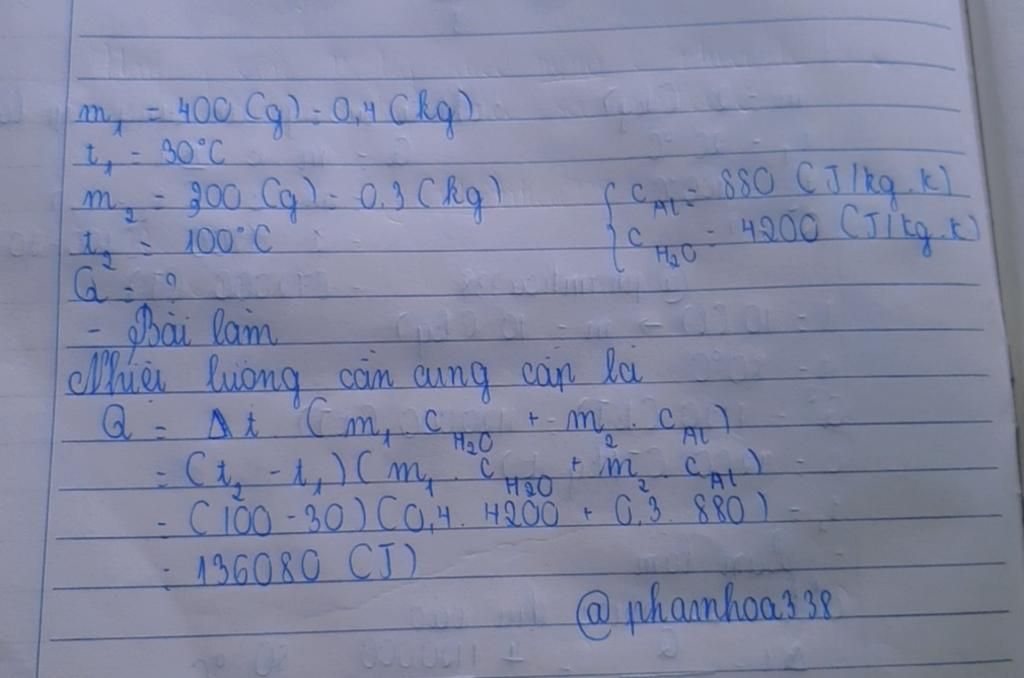 m₁ = 400 (g) = 0,4 (kg)
t₁ = 30°C
m₂ = 300 (g) = 0.3 (kg)
t₂ = 100°C
{ c_Al = 880 (J/kg.k)
{ c_H₂O = 4200 (J/kg.k)
Q = ?
- Bài làm
Nhiệt lượng cần cung cấp là
Q = Δt (m₁ c_H₂O + m₂ . c_Al)
= (t₂ - t₁)(m₁ . c_H₂O + m₂ . c_Al)
= (100 - 30)(0,4 . 4200 + 0,3 . 880)
= 136080 (J)
@phamhoa338